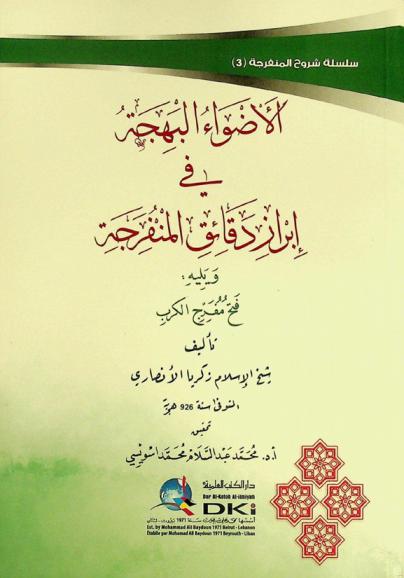 سلسلة شروح المنفرجة (3)
الأضواء البهجة
في
إبراز دقائق المنفرجة
ويليه:
فتح مفرج الكرب
تأليف
شيخ الإسلام زكريا الأنصاري
المتوفى سنة 926 هـ
تحقيق
أ.د. محمد عبد السلام محمد اسونيسي
دار الكتب العلمية
Dar Al-Kotob Al-ilmiyah
DKi
Est. by Mohammad Ali Baydoun 1971 Beirut - Lebanon
Établie par Mohamad Ali Baydoun 1971 Beyrouth - Liban